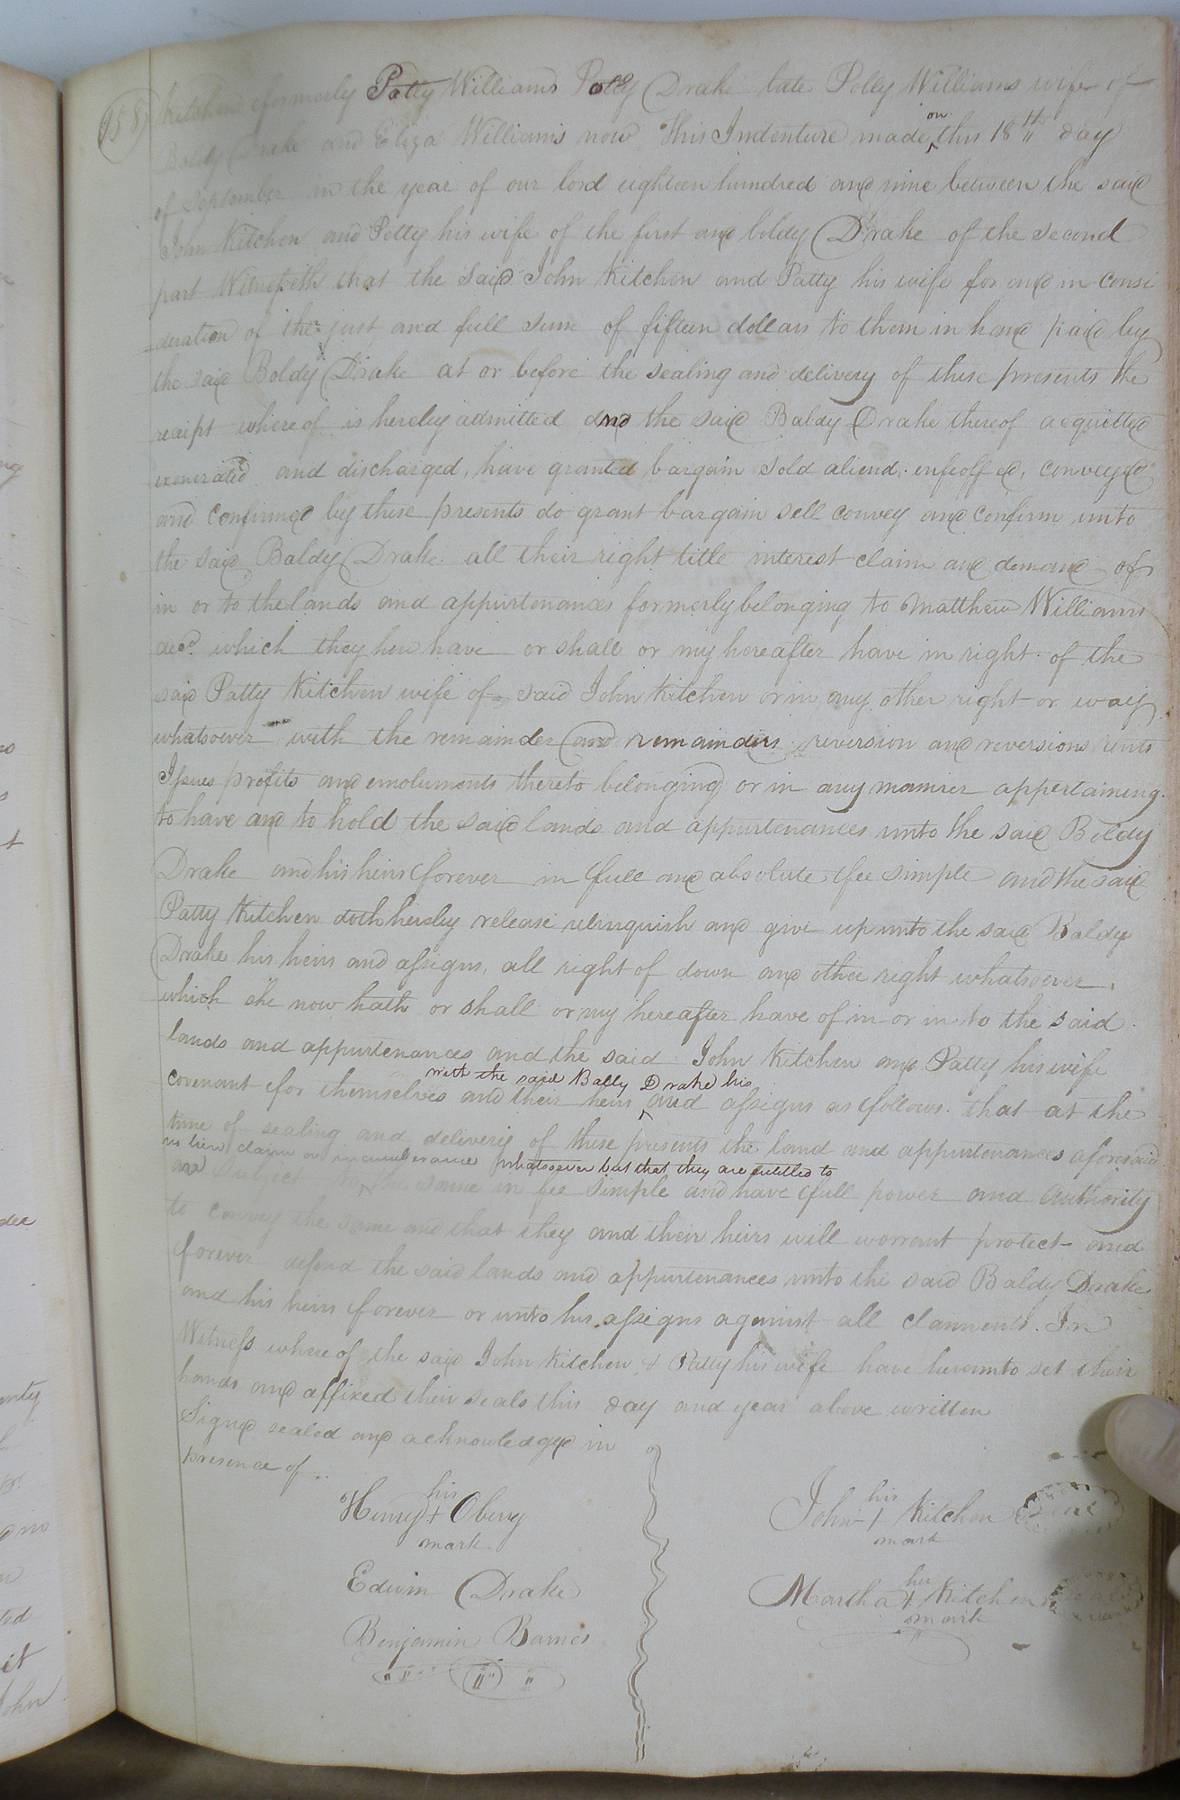 158
Kitchen formerly Patty Williams Polly Drake late Polly Williams wife of
Boldy Drake and Eliza Williams now This Indenture made on this 18th day
of September in the year of our lord eighteen hundred and nine between the said
John Kitchen and Petty his wife of the first and boldy Drake of the second
part Witnesseth that the Said John Kitchen and Patty his wife for and in consi
deration of the just and full sum of fifteen dollars to them in hand paid by
the said Boldy Drake at or before the sealing and delivery of these presents the
receipt whereof is hereby admitted and the said Baldy Drake thereof acquitted
exonerated and discharged, have granted bargain sold aliend. enfeoffed, conveyed
and confirmed by these presents do grant bargain sell convey and confirm unto
the said Baldy Drake all their right title interest claim and demand of
in or to the lands and appurtenances formerly belonging to Matthew Williams
decd. which they have or shall or my hereafter have in right of the
said Patty Kitchen wife of said John Kitchen or in any other right or way
whatsoever with the remainder and remainders reversion and reversions rents
Issues profits and emoluments thereto belonging or in any manner appertaining.
to have and to hold the said lands and appurtenances unto the said Boldy
Drake and his heirs forever in full and absolute fee simple and the said
Patty Kitchen doth hereby release relinquish and give up unto the said Baldy
Drake his heirs and assigns, all right of down and other right whatsoever
which she now hath or shall or my hereafter have of in or in to the said
lands and appurtenances and the said John Kitchen and Patty his wife
with the said Bally Drake his
covenant for themselves and their heirs and assigns as follows. that at the
time of sealing and deliverie of these presents the land and appurtenances aforesaid
no lien claim or incumberance whatsoever but that they are entitled to
are Subject the same in fee simple and have full power and authority
to convey the same and that they and their heirs will worrant protect and
forever defend the said lands and appurtenances unto the said Baldy Drake
and his heirs forever or unto his assigns against all claiments. In
Witness whereof the said John Kitchen & Patty his wife have hereunto set their
hands and affixed their seals this day and year above written
Signed sealed and acknowledged in
presence of
his
Henry + Oberry
mark
Edwin Drake
Benjamin Barnes
his
John + Kitchen Seal
mark
her
Martha + Kitchen Seal
mark